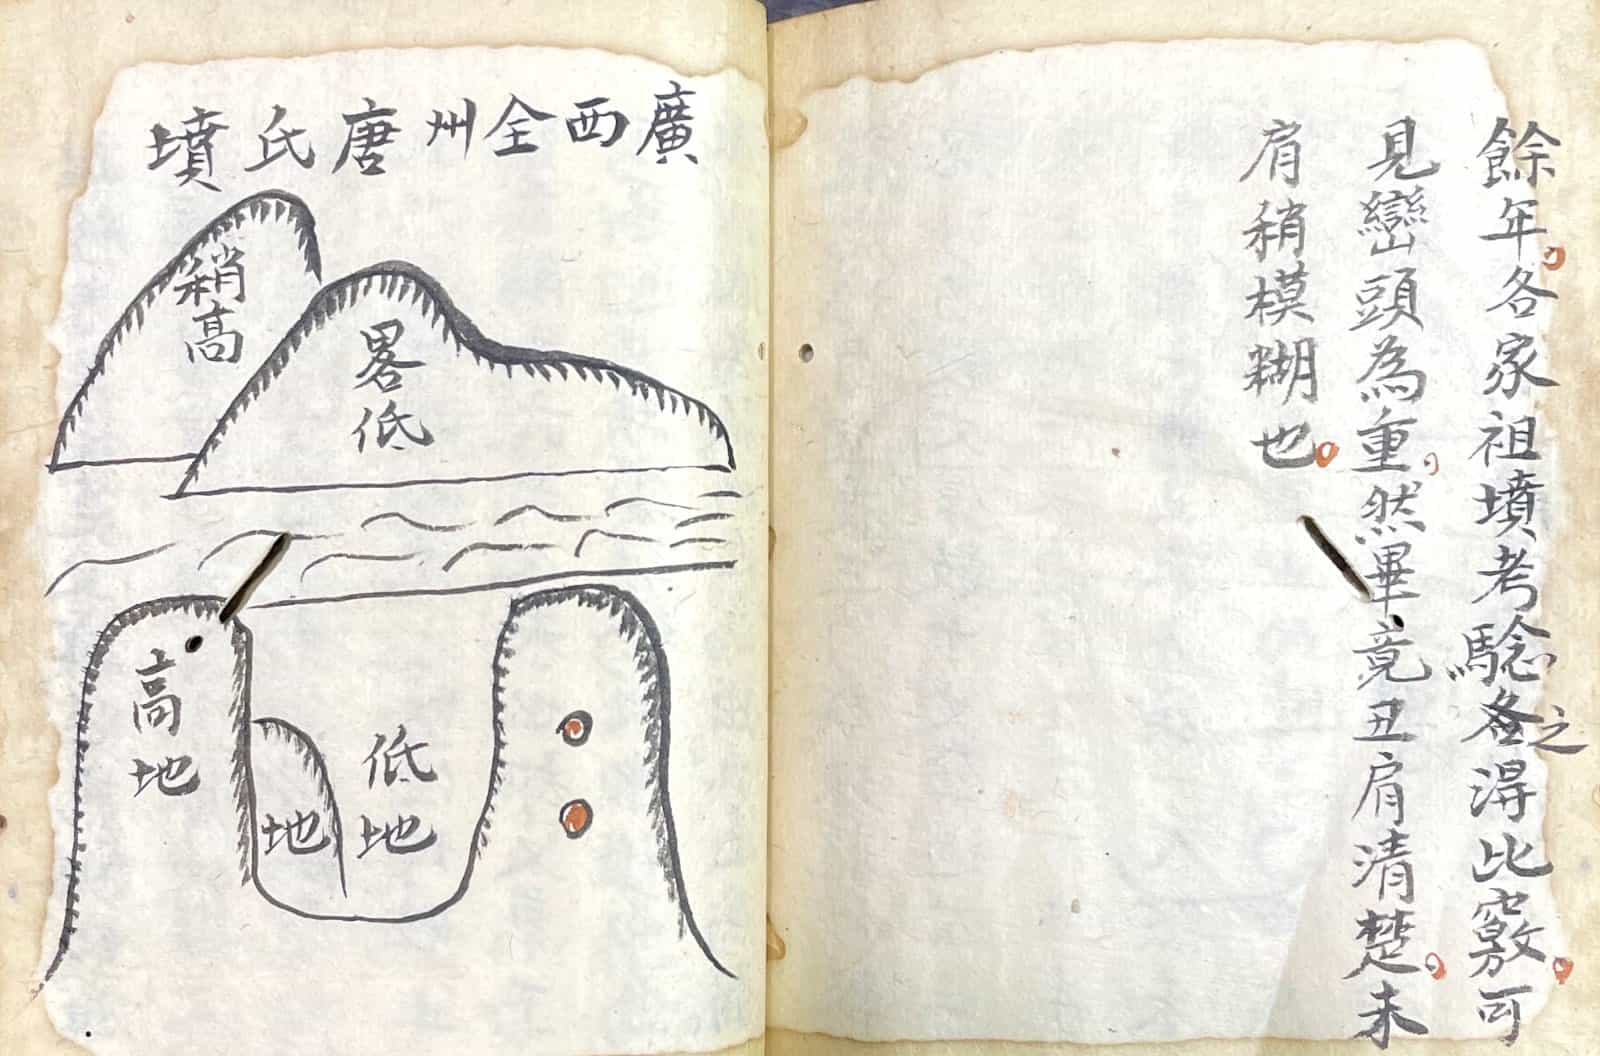 餘年各家祖墳考騐之淂比竅可
見巒頭為重然畢竟丑肩清楚未
肩稍模糊也
廣西全州唐氏墳
稍高
畧低
高地
低地
地